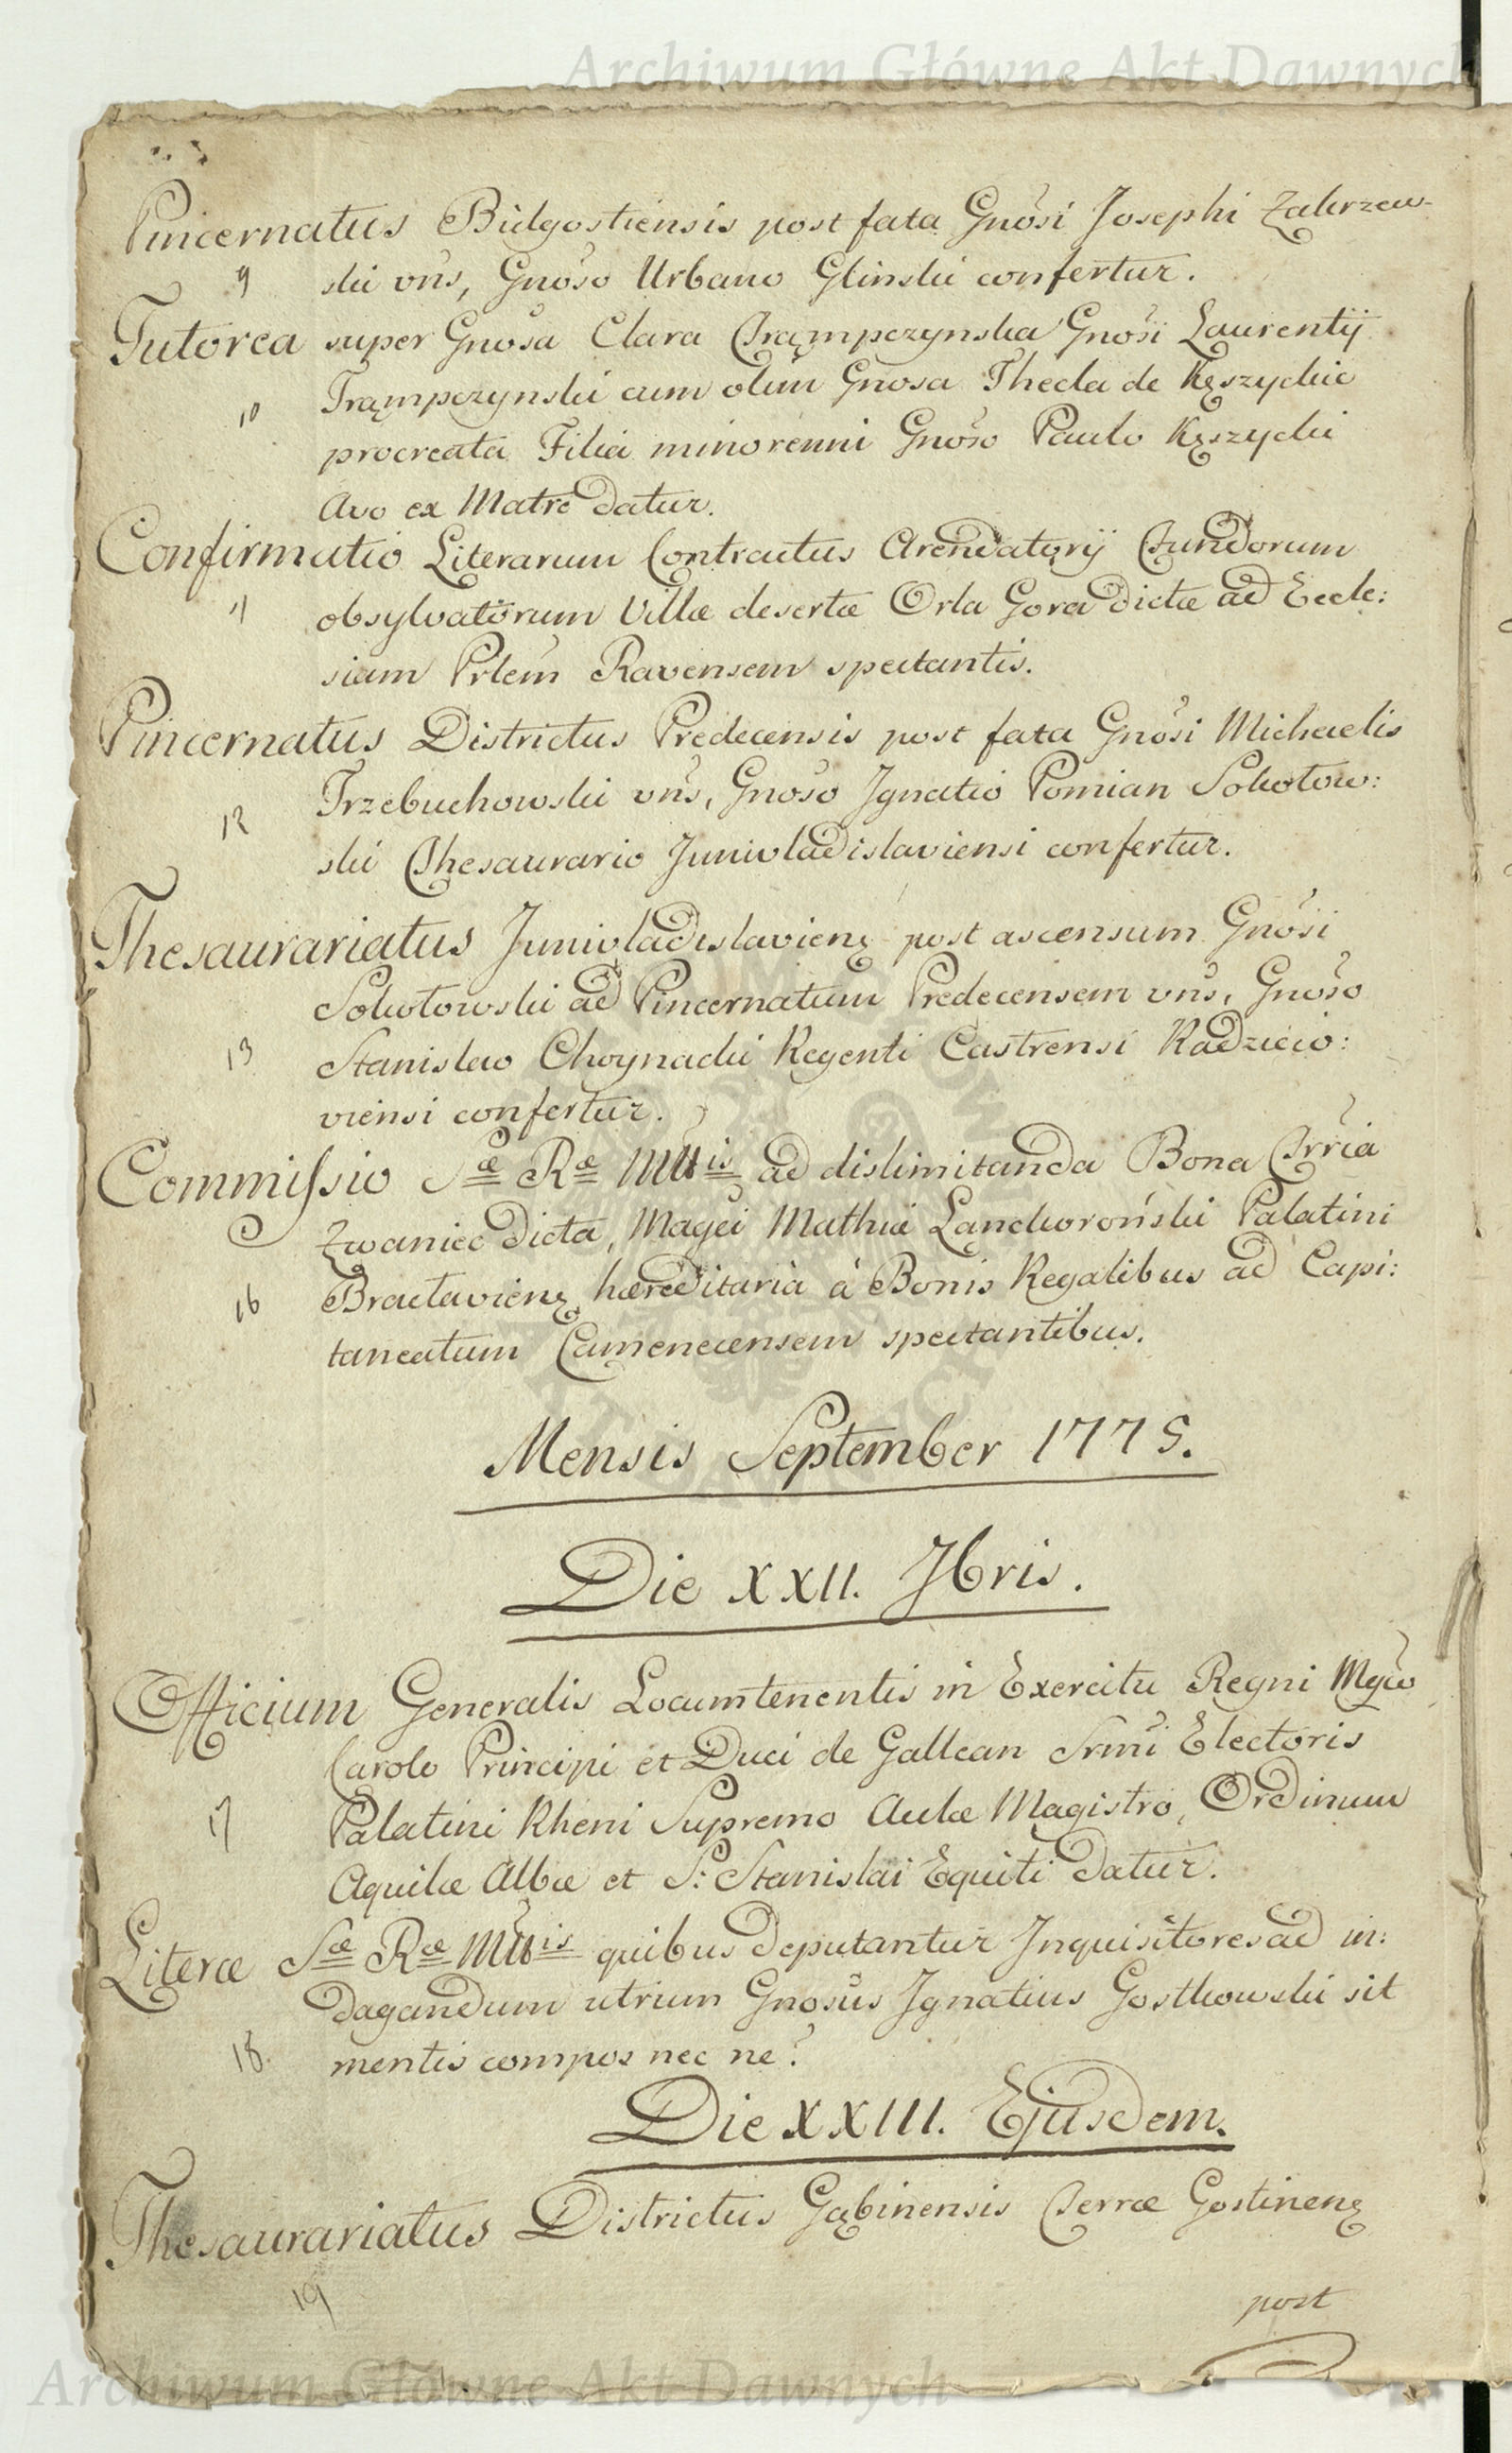 Archiwum Główne Akt Dawnych
Pincernatus Bidgostiensis post fata Gnosi Josephi Zakrzew-
ski vns, Gnoso Urbano Glinski confertur.
9
Tutorea super Gnosa Clara Trąmpczynska Gnosi Laurentij
Trąmpczynski cum olim Gnosa Thecla de Kęszyckie
10
procreata Filia minorenni Gnoso Paulo Kęszycki
Avo ex Matre datur.
Confirmatio Literarum Contractus Arendatorij Fundorum
11
obsylvatorum Villæ desertæ Orla Gora dictæ ad Eccle:
siam Prlem Ravensem spectantis.
Pincernatus Districtus Predecensis post fata Gnosi Michaelis
Trzebuchowski vns, Gnoso Ignatio Pomian Sokołow:
12
ski Thesaurario Junivladislaviensi confertur.
Thesaurariatus Junivladislavienę post ascensum Gnosi
Sokołowski ad Pincernatum Predecensem vns, Gnoso
13
Stanislao Choynacki Regenti Castrensi Radzieio:
viensi confertur.
Commissio Sæ Ræ Mttis ad dislimitanda Bona Trria
Zwaniec dicta, Magci Mathiæ Lanckoroński Palatini
16
Braclavienę hæreditaria à Bonis Regalibus ad Capi:
taneatum Camenecensem spectantibus.
Mensis September 1775.
Die XXII. 7bris.
Officium Generalis Locumtenentis in Exercitu Regni Mgco
Carolo Principi et Duci de Gallean Srmi Electoris
17
Palatini Rheni Supremo Aulæ Magistro, Ordinum
Aquilæ Albæ et S: Stanislai Equiti datur.
Literæ Sæ Ræ Mttis quibus deputantur Inquisitores ad in:
dagandum utrum Gnosus Ignatius Gostkowski sit
18.
mentis compos nec ne?
Die XXIII. Ejusdem.
Thesaurariatus Districtus Gąbinensis Terræ Gostinenę
19
post
Archiwum Główne Akt Dawnych